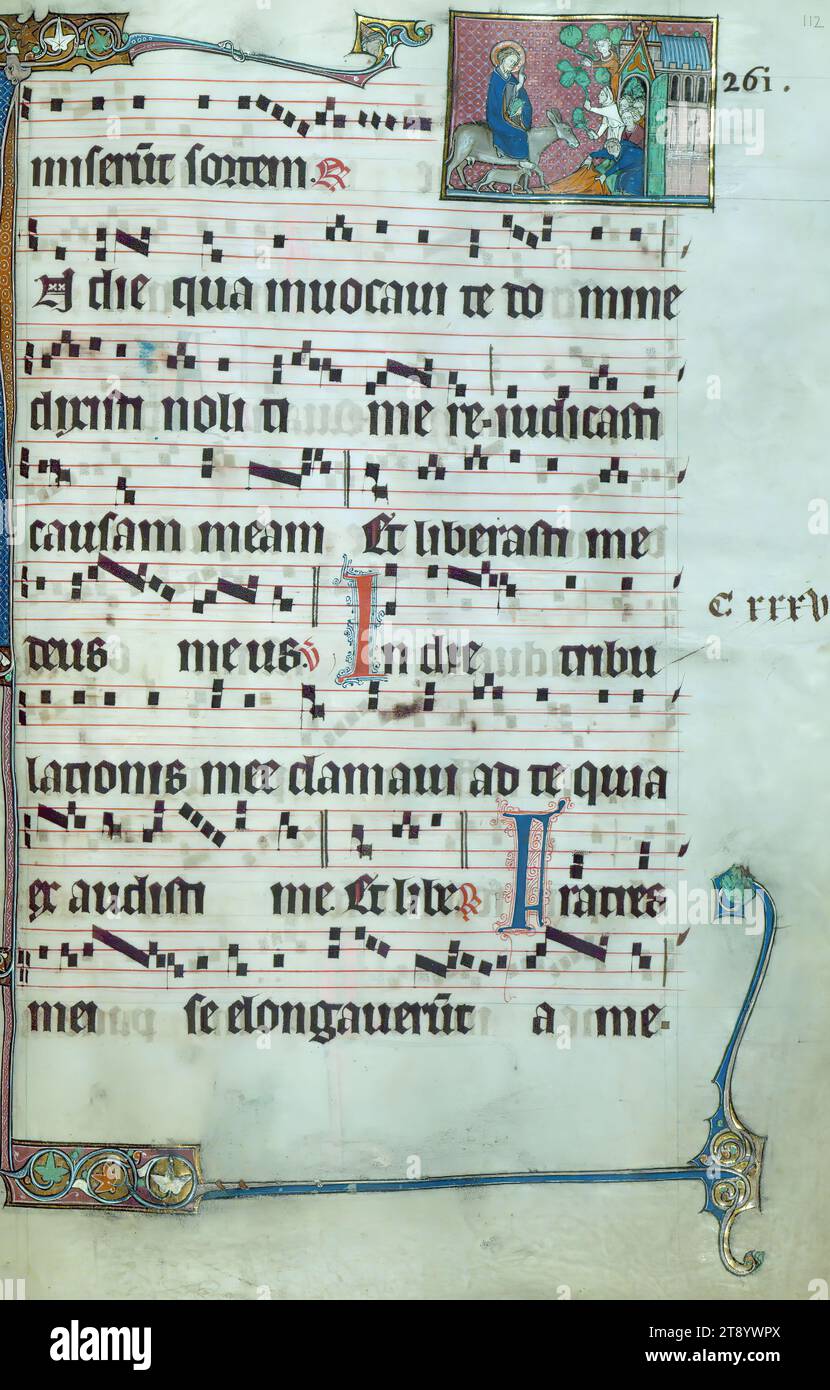 112
261.
miserūt sortem. R
In die qua inuocaui te do mine
dixisti noli ti me re. iudicasti
causam meam Et liberasti me
C xxxv
deus meus. V In die tribu
lationis mee clamaui ad te quia
ex audisti me. Et libe. R Fratres
mei se elongauerūt a me.
alamy
Image ID: 2T8YWPX
www.alamy.com